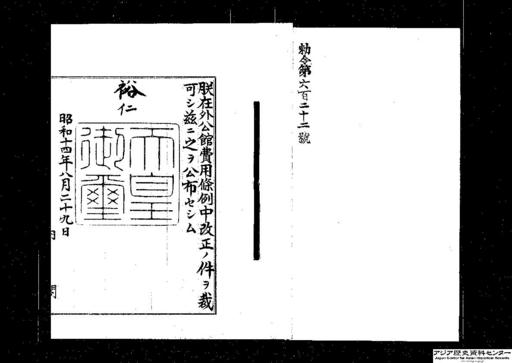 勅令第六百二十二號
朕在外公館費用條例中改正ノ件ヲ裁
可シ茲ニ之ヲ公布セシム
裕仁
天皇
御璽
昭和十四年八月二十九日
アジア歴史資料センター
Japan Center for Asian Historical Records